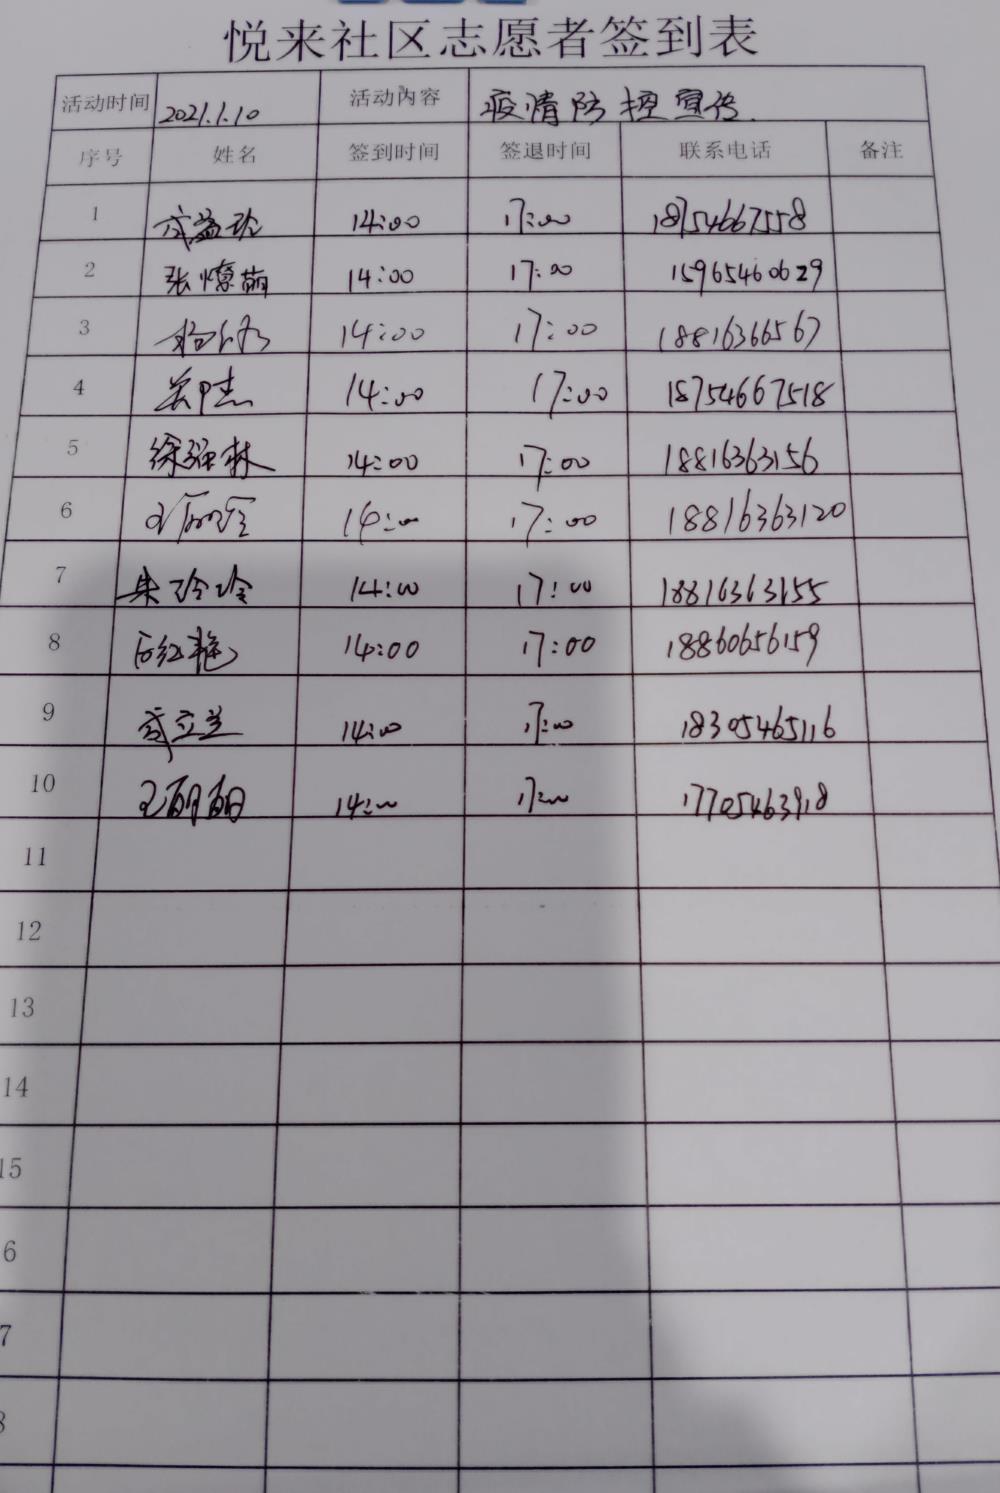 悦来社区志愿者签到表
活动时间 2021.1.10 活动内容 疫情防控宣传.
序号 姓名 签到时间 签退时间 联系电话 备注
1 成益玲 14:00 17:00 18754667558
2 张燎萌 14:00 17:00 15965460629
3 14:00 17:00 18816366567
4 14:00 17:00 18754667518
5 徐强林 14:00 17:00 18816363156
6 14:00 17:00 18816363120
7 朱玲玲 14:00 17:00 18816363155
8 石红艳 14:00 17:00 18860656159
9 成立兰 14:00 17:00 18305465116
10 14:00 17:00 17705463918
11
12
13
14
15
6
7
8